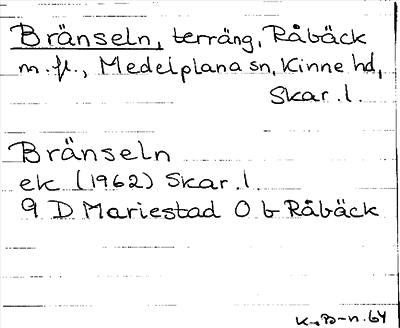 Bränseln, terräng, Råbäck
m. fl., Medelplana sn, Kinne hd,
Skar. l.
Bränseln
ek (1962) Skar. l.
9 D Mariestad O b Råbäck